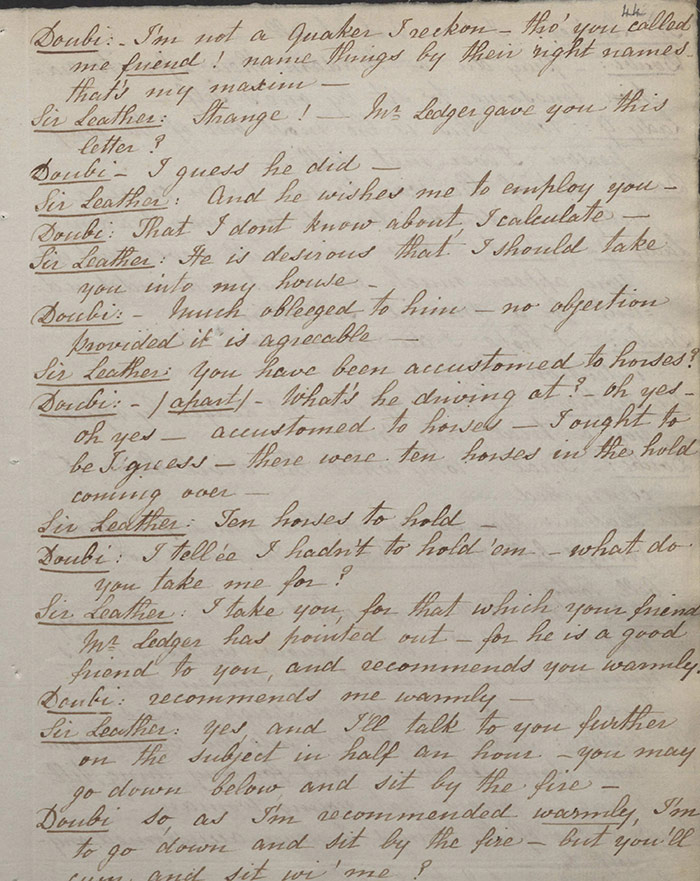 44
Doubi:- I'm not a Quaker I reckon - tho' you called
me friend! name things by their right names
that's my maxim -
Sir Leather: Strange! - Mr. Ledger gave you this
letter?
Doubi - I guess he did -
Sir Leather: And he wishes me to employ you -
Doubi: That I dont know about, I calculate -
Sir Leather: He is desirous that I should take
you into my house -
Doubi:- Much obleeged to him - no objection
provided it is agreeable -
Sir Leather: You have been accustomed to horses?
Doubi:- (apart) - What's he driving at? - oh yes -
oh yes - accustomed to horses - I ought to
be I guess - there were ten horses in the hold
coming over -
Sir Leather: Ten horses to hold -
Doubi: I tell'ee I hadn't to hold 'em - what do
you take me for?
Sir Leather: I take you, for that which your friend
Mr. Ledger has pointed out - for he is a good
friend to you, and recommends you warmly.
Doubi: recommends me warmly -
Sir Leather: yes, and I'll talk to you further
on the subject in half an hour - you may
go down below and sit by the fire -
Doubi so as I'm recommended warmly, I'm
to go down and sit by the fire - but you'll
cum and sit wi' me?